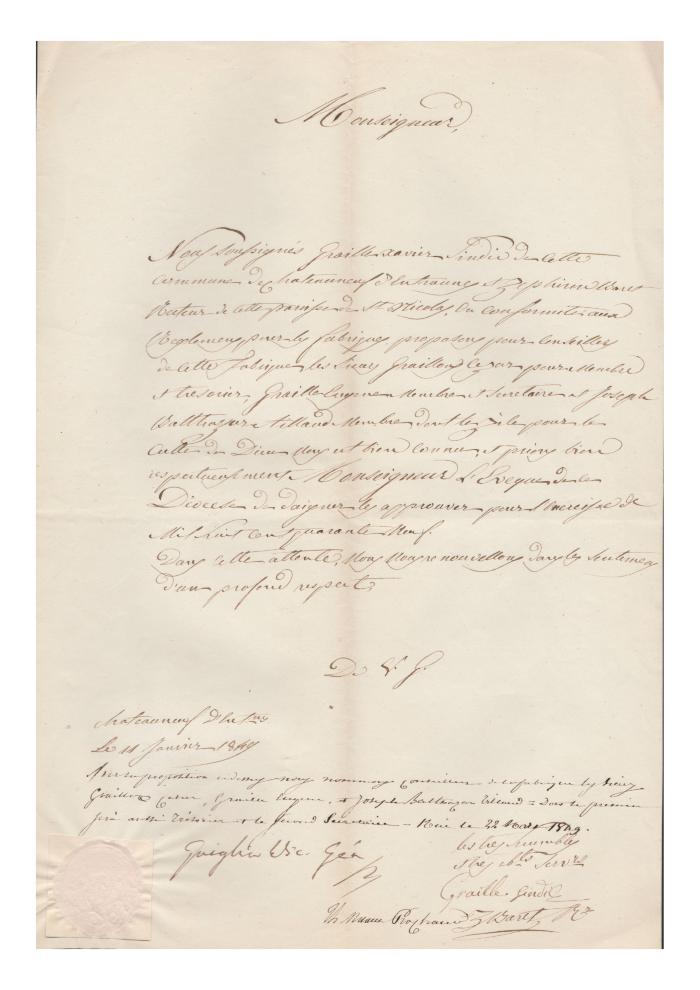 Monseigneur,
Nous soussignés Graille xavier Sindic de cette
commune de chateauneuf d'Entraunes et Zephirin Baret
Recteur de cette paroisse de St Nicolas, En conformité aux
Reglemens pour les fabriques proposons pour Conseillers
de cette fabrique les Sieurs Graillon Cezar pour Membre
et tresorier, Graille Eugene Membre et Secretaire et Joseph
Balthazar tillaud Membre dont le zèle pour le
culte de Dieu nous est bien connu et prions bien
respectueusement Monseigneur L'Eveque de ce
Diocese de daigner les approuver pour l'exercise de
Mil huit cent quarante Neuf.
Dans cette attente, Nous Nous renouvellons dans les sentimens
d'un profond respect,
De V. G.
chateauneuf d'Entnes
Le 11 Janvier 1849
Vu la proposition cidessus nous nommons conseillers de la fabrique les Sieurs
Graillon Cesar, Graille Eugene, et Joseph Balthazar Tillaud - Dont le premier
sera aussi Trésorier et le second Secretaire - Nice le 22 Mars 1849.
Les tres humbles
et tres obts Servts
Vic. Gén
Graille Sindic
Z Baret Rr